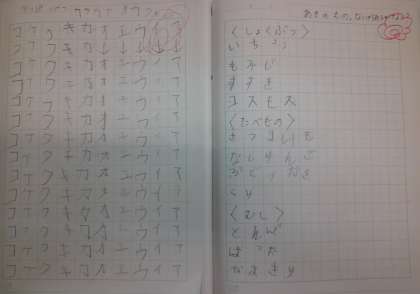 コケクキカオエウイア
コケクキカオエウイア
コケクキカオエウイア
コケクキカオエウイア
コケクキカオエウイア
コケクキカオエウイア
コケクキカオエウイア
コケクキカオエウイア
コケクキカオエウイア
コケクキカオエウイア
コケクキカオエウイア
コケクキカオエウイア
コケクキカオエウイア
<しょくぶつ>
いちょう
もみじ
すすき
コスモス
<たべもの>
さつまいも
なしりんご
ぶどう、かき
くり
<むし>
とんぼ
ばった
かまきり